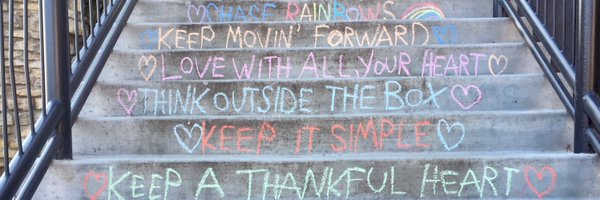 CHASE RAINBOWS
KEEP MOVIN' FORWARD
LOVE WITH ALL YOUR HEART
THINK OUTSIDE THE BOX
KEEP IT SIMPLE
KEEP A THANKFUL HEART